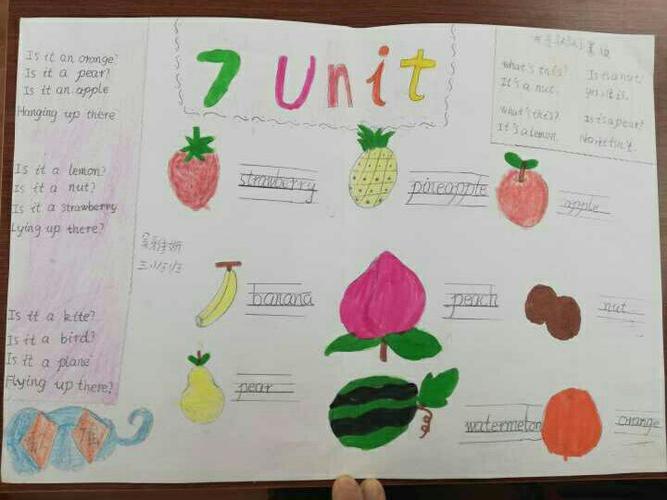 7 Unit
Is it an orange?
Is it a pear?
Is it an apple
Hanging up there
Is it a lemon?
Is it a nut?
Is it a strawberry
Lying up there?
Is it a kite?
Is it a bird?
Is it a plane
Flying up there?
What's this?
It's a nut.
What's this?
It's a lemon.
Is this a nut?
yes it is.
Is it a pear?
No it isn't.
strawberry
pineapple
apple
banana
peach
nut
pear
watermelon
orange